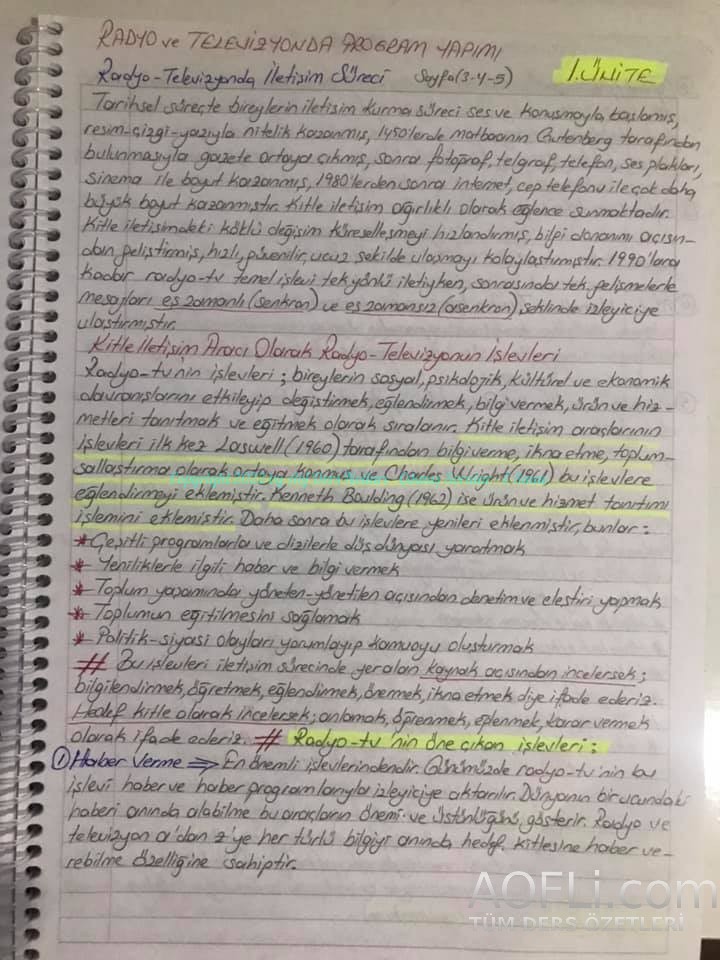 RADYO ve TELEVİZYONDA PROGRAM YAPIMI
Radyo-Televizyonda İletişim Süreci Sayfa(3-4-5) 1.ÜNİTE
Tarihsel süreçte bireylerin iletişim kurma süreci ses ve konuşmayla başlamış,
resim-çizgi-yazıyla nitelik kazanmış, 1450'lerde matbaanın Gutenberg tarafından
bulunmasıyla gazete ortaya çıkmış, sonra fotoğraf, telgraf, telefon, ses plakları,
sinema ile boyut kazanmış, 1980'lerden sonra internet, cep telefonu ile çok daha
büyük boyut kazanmıştır. Kitle iletişim ağırlıklı olarak eğlence sunmaktadır.
Kitle iletişimdeki köklü değişim küreselleşmeyi hızlandırmış, bilgi donanımı açısın-
dan geliştirmiş, hızlı, güvenilir, ucuz şekilde ulaşmayı kolaylaştırmıştır. 1990'lara
kadar radyo-tv temel işlevi tek yönlü iletiyken, sonrasında tek. gelişmelerle
mesajları eş zamanlı (senkron) ve eş zamansız (asenkron) şeklinde izleyiciye
ulaştırmıştır.
Kitle İletişim Aracı Olarak Radyo-Televizyonun İşlevleri
Radyo-tv'nin işlevleri; bireylerin sosyal, psikolojik, kültürel ve ekonomik
davranışlarını etkileyip değiştirmek, eğlendirmek, bilgi vermek, ürün ve hiz-
metleri tanıtmak ve eğitmek olarak sıralanır. Kitle iletişim araçlarının
işlevleri ilk kez Laswell (1960) tarafından bilgi verme, ikna etme, toplum-
sallaştırma olarak ortaya konmuş ve Charles Wright (1961) bu işlevlere
eğlendirmeyi eklemiştir. Kenneth Boulding (1962) ise ürün ve hizmet tanıtımı
işlemini eklemiştir. Daha sonra bu işlevlere yenileri eklenmiştir, bunlar:
* Çeşitli programlarla ve dizilerle düş dünyası yaratmak
* Yeniliklerle ilgili haber ve bilgi vermek
* Toplum yaşamında yöneten-yönetilen açısından denetim ve eleştiri yapmak
* Toplumun eğitilmesini sağlamak
* Politik-siyasi olayları yorumlayıp kamuoyu oluşturmak
# Bu işlevleri iletişim sürecinde yer alan kaynak açısından incelersek;
bilgilendirmek, öğretmek, eğlendirmek, önermek, ikna etmek diye ifade ederiz.
Hedef kitle olarak incelersek; anlamak, öğrenmek, eğlenmek, karar vermek
olarak ifade ederiz. # Radyo-tv'nin öne çıkan işlevleri:
① Haber Verme ⇒ En önemli işlevlerindendir. Günümüzde radyo-tv'nin bu
işlevi haber ve haber programlarıyla izleyiciye aktarılır. Dünyanın bir ucundaki
haberi anında alabilme bu araçların önemi ve üstünlüğünü gösterir. Radyo ve
televizyon a'dan z'ye her türlü bilgiyi anında hedef kitlesine haber ve-
rebilme özelliğine sahiptir.
AOFLi.com
TÜM DERS ÖZETLERİ